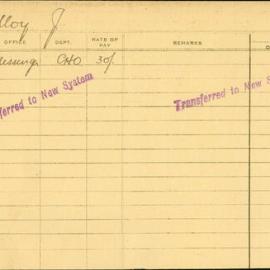 lloy J
OFFICE DEPT. RATE OF PAY REMARKS
Messenger CHO 30/-
ferred to New System
Transferred to New S